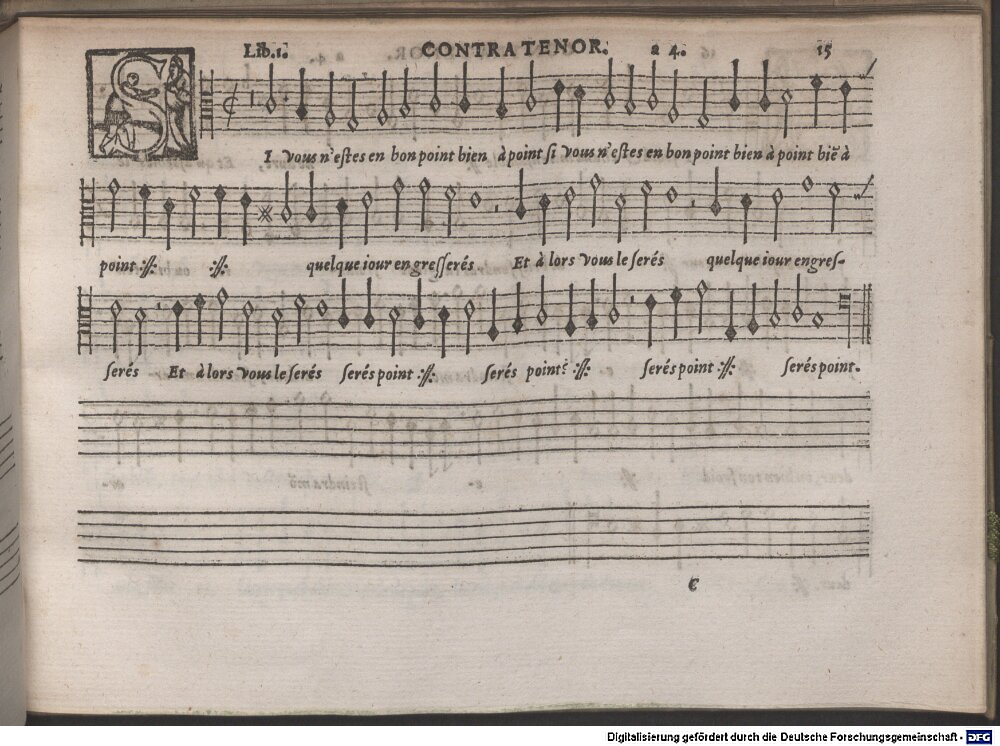 Lib.1. CONTRATENOR. a 4. 15
SI vous n'estes en bon point bien à point si vous n'estes en bon point bien à point biẽ à
point :ỻ: :ỻ: quelque iour engresserés Et à lors vous le serés quelque iour engres-
serés Et à lors vous le serés serés point :ỻ: serés point :ỻ: serés point :ỻ: serés point.
C
Digitalisierung gefördert durch die Deutsche Forschungsgemeinschaft - DFG